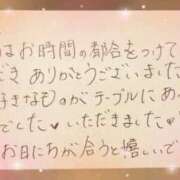 はお時間の都合をつけて
だき ありがとうございました
好きなものがテーブルにあ
でした♥ いただきました♥
お日にちが合うと嬉しいで